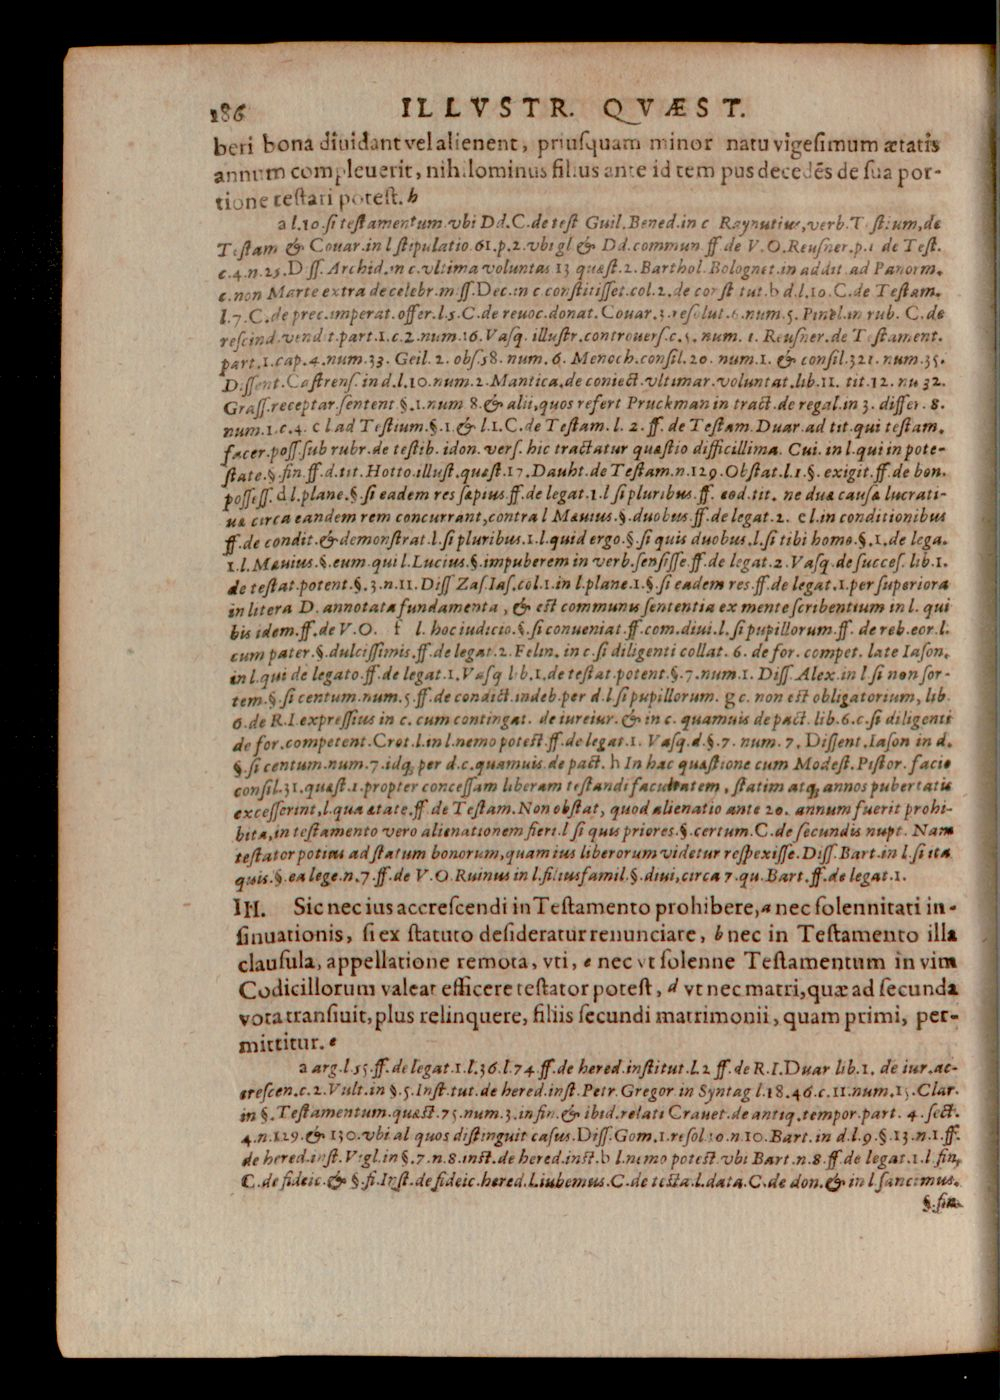 186 ILLVSTR. QVÆST.
beri bona diuidant vel alienent, priusquam minor natu vigesimum ætatis
annum compleuerit, nihilominus filius ante id tempus decedẽs de sua por-
tione testari potest. h
a l.10. si testamentum vbi Dd. C. de test Guil. Bened. in c Raynutius, verb. Testium, de
Testam & Couar. in l stipulatio 61. p.2. vbi gl & Dd. commun. ff. de V. O. Reusner. p.1 de Test.
c.4. n.25. Diss. Archid. in c. vltima voluntas 13 quæst.2. Barthol. Bolognet. in addit. ad Panorm.
c. non Marte extra de celebr. miss. Dec. in c constitisset. col.2. de const tut. b d.l.10. C. de Testam.
l.7. C. de prec. imperat. offer. l.5. C. de reuoc. donat. Couar. 3. resolut. 6. num.5. Pinel. in rub. C. de
rescind. vendit. part.1. c.2. num.16. Vasq. illustr. controuers. c.5. num. 1. Reusner. de Testament.
part.1. cap.4. num.33. Geil. 2. obs.58. num. 6. Menoch. consil. 20. num.1. & consil. 321. num.35.
Dissent. Castrens. in d.l.10. num.2. Mantica. de coniect. vltimar. voluntat. lib.11. tit.12. nu 32.
Grass. receptar. sentent §.1. num 8. & alii, quos refert Pruckman in tract. de regal. in 3. differ. 8.
num.1. c.4. c l. ad Testium. §.1. & l.1. C. de Testam. l. 2. ff. de Testam. Duar. ad tit. qui testam.
facer. poss. sub rubr. de testib. idon. vers. hic tractatur quæstio difficillima. Cui. in l. qui in pote-
state. §. fin. ff. d. tit. Hotto. illust. quæst.17. Dauht. de Testam. n.129. Obstat. l.1. §. exigit. ff. de bon.
possess. d l. plane. §. si eadem res sæpius. ff. de legat.1. l si pluribus. ff. eod. tit. ne duæ causæ lucrati-
uæ circa eandem rem concurrant, contra l Mæuius. §. duobus. ff. de legat.2. e l. in conditionibus
ff. de condit. & demonstrat. l. si pluribus.1. l. quid ergo. §. si quis duobus. l. si tibi homo. §.1. de lega.
1. l. Mæuius. §. eum. qui l. Lucius. §. impuberem in verb. sensisse. ff. de legat.2. Vasq. de succes. lib.1.
de testat. potent. §.3. n.11. Diss Zas. Ias. col.1. in l. plane.1. §. si eadem res. ff. de legat.1. per superiora
in litera D. annotata fundamenta, & est communis sententia ex mente scribentium in l. qui
bis idem. ff. de V. O. f l. hoc iudicio. §. si conueniat. ff. com. diui. l. si pupillorum. ff. de reb. eor. l.
cum pater. §. dulcissimis. ff. de legat.2. Felin. in c. si diligenti collat. 6. de for. compet. late Iason.
in l. qui de legato. ff. de legat.1. Vasq lib.1. de testat. potent. §.7. num.1. Diss. Alex. in l si non sor-
tem. §. si centum. num.5. ff. de condict. indeb. per d. l si pupillorum. g c. non est obligatorium, lib.
6. de R. I. expressius in c. cum contingat. de iureiur. & in c. quamuis de pact. lib.6. c. si diligenti
de for. competent. Crot. l. in l. nemo potest. ff. de legat.1. Vasq. d. §.7. num.7. Dissent. Iason in d.
§. si centum. num.7. idq; per d. c. quamuis. de pact. h In hac quæstione cum Modest. Pistor. facio
consil.31. quæst.1. propter concessam liberam testandi facultatem, statim atq; annos pubertatis
excesserint, l. qua ætate. ff. de Testam. Non obstat, quod alienatio ante 20. annum fuerit prohi-
bita, in testamento vero alienationem fieri. l si quis priores. §. certum. C. de secundis nupt. Nam
testator potius ad statum bonorum, quam ius liberorum videtur respexisse. Diss. Bart. in l. si ita
quis. §. ea lege. n.7. ff. de V. O. Ruinus in l. filiusfamil. §. diui, circa 7. qu. Bart. ff. de legat.1.
III. Sic nec ius accrescendi in Testamento prohibere, a nec solennitati in-
sinuationis, si ex statuto desideratur renunciare, b nec in Testamento illa
clausula, appellatione remota, vti, c nec vt solenne Testamentum in vim
Codicillorum valeat efficere testator potest, d vt nec matri, quæ ad secunda
vota transiuit, plus relinquere, filiis secundi matrimonii, quam primi, per-
mittitur. e
a arg. l.55. ff. de legat.1. l.36. l.74. ff. de hered. institut. l.2 ff. de R. I. Duar lib.1. de iur. ac-
crescen. c.2. Vult. in §.5. Inst. tut. de hered. inst. Petr. Gregor in Syntag l.18. 46. c.11. num.15. Clar.
in §. Testamentum. quæst.75. num.3. in fin. & ibid. relati Crauet. de antiq. tempor. part. 4. sect.
4. n.129. & 130. vbi al quos distinguit casus. Diss. Gom. 1. resol 10. n.10. Bart. in d. l.9. §.13. n.1. ff.
de hered. inst. Vigl. in §.7. n.8. inst. de hered. inst. b l. nemo potest vbi Bart. n.8. ff. de legat.1. l. fin,
C. de fideic. & §. fi. Inst. de fideic. hered. l. iubemus. C. de testa. l. data. C. de don. & in l sancimus.
§. fin.